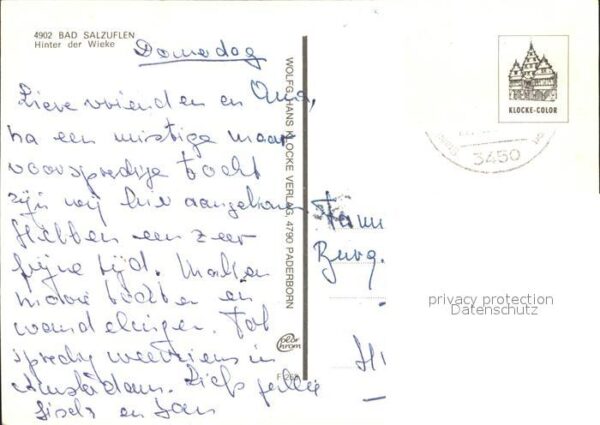 4902 BAD SALZUFLEN
Hinter der Wieke
Donnerdag
Lieve vrienden en Oma,
na een mistige maar
voorspoedige tocht
zijn wij hier aangekomen
Hebben een zeer
fijne tijd. Maken
mooie tochten en
wandelingen. Tot
spoedig weerziens in
Amsterdam. Liefs jullie
en Jan
WOLFG. HANS KLOCKE VERLAG, 4790 PADERBORN
color chrom
KLOCKE-COLOR
3450
Fam
Burg.
privacy protection
Datenschutz